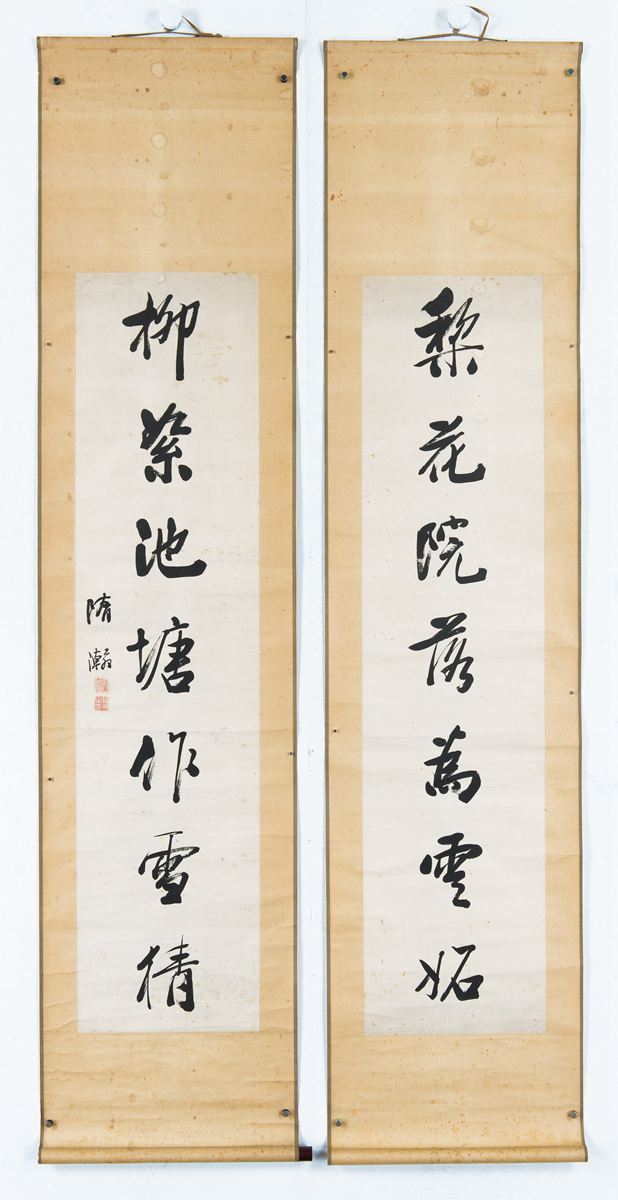 梨花院落為雲妬
柳絮池塘作雪猜
隋瀚